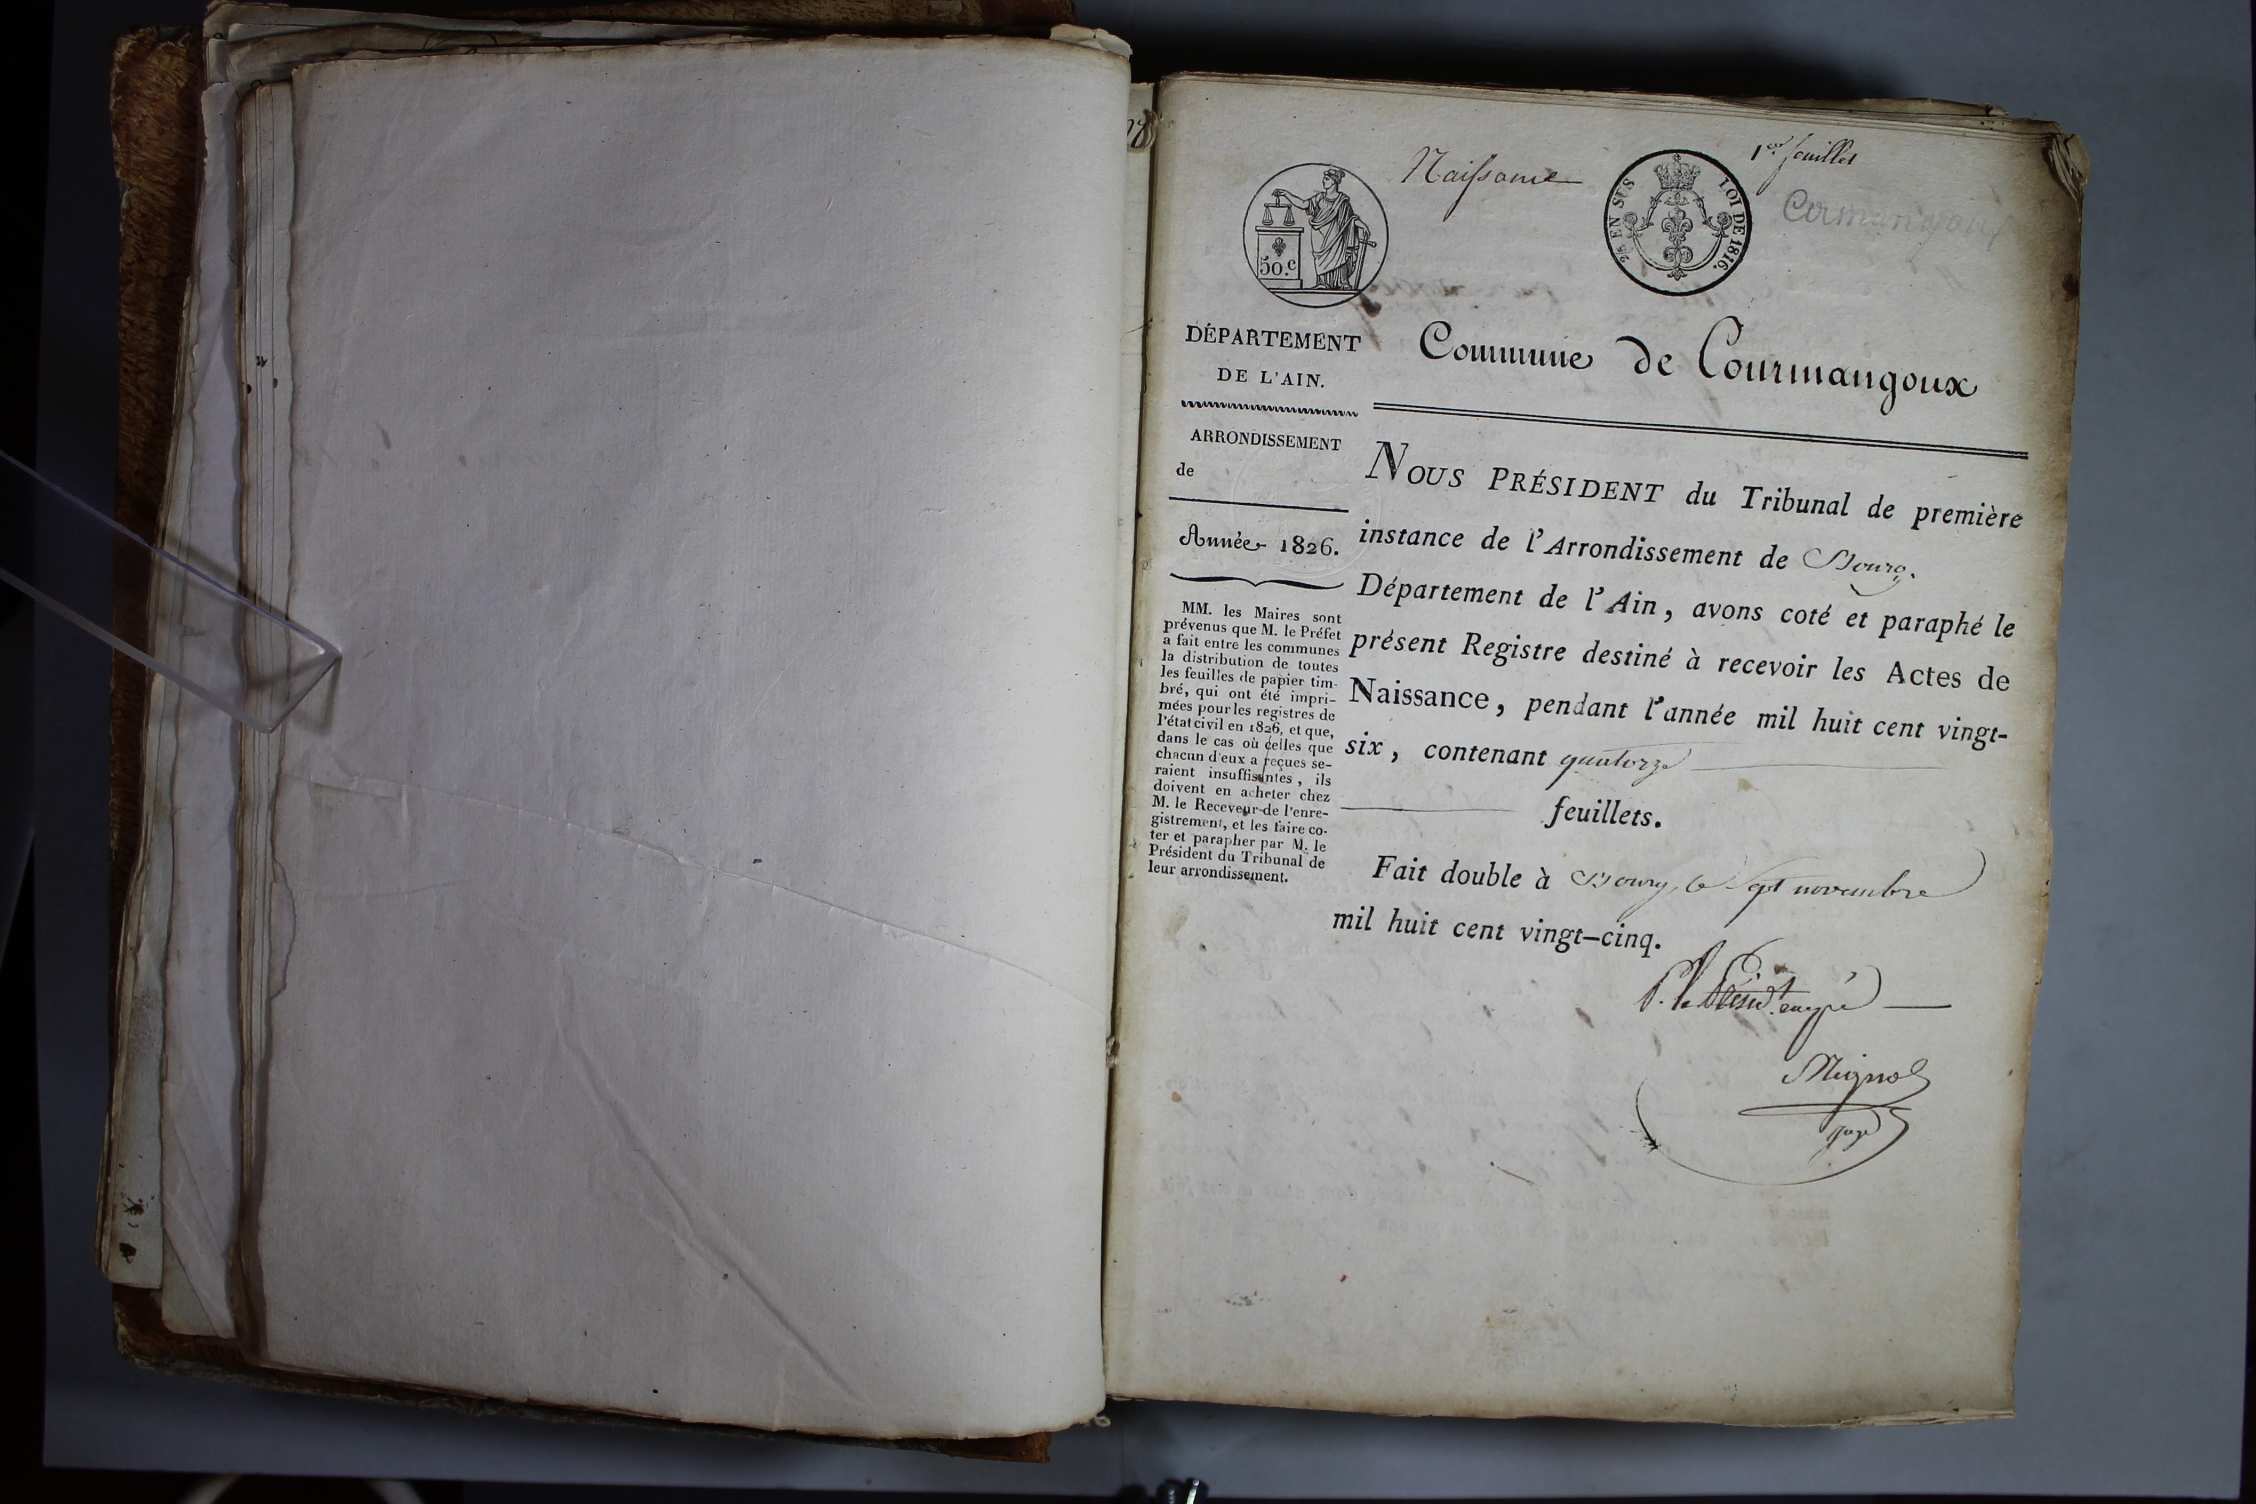 Naissance
1er feuillet
Cormangoux
50.c
2es EN SUS
LOI DE 1816.
DÉPARTEMENT
DE L'AIN.
ARRONDISSEMENT
de
Année 1826.
MM. les Maires sont
prévenus que M. le Préfet
a fait entre les communes
la distribution de toutes
les feuilles de papier tim-
bré, qui ont été impri-
mées pour les registres de
l'état civil en 1826, et que,
dans le cas où celles que
chacun d'eux a reçues se-
raient insuffisantes, ils
doivent en acheter chez
M. le Receveur de l'enre-
gistrement, et les faire co-
ter et parapher par M. le
Président du Tribunal de
leur arrondissement.
Commune de Courmangoux
NOUS PRÉSIDENT du Tribunal de première
instance de l'Arrondissement de Bourg.
Département de l'Ain, avons coté et paraphé le
présent Registre destiné à recevoir les Actes de
Naissance, pendant l'année mil huit cent vingt-
six, contenant quatorze
feuillets.
Fait double à Bourg, le sept novembre
mil huit cent vingt-cinq.
P. le Présidt. empé
juge